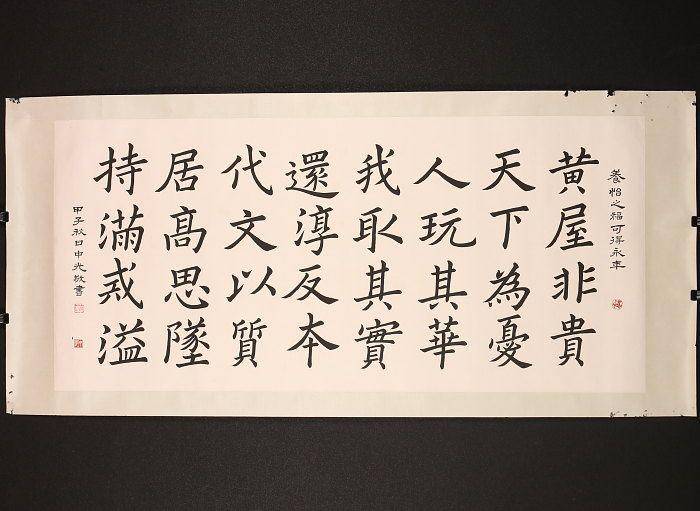 養怡之福可得永年
黄屋非貴
天下為憂
人玩其華
我取其實
還淳反本
代文以質
居高思墜
持滿戒溢
甲子秋日申光敬書